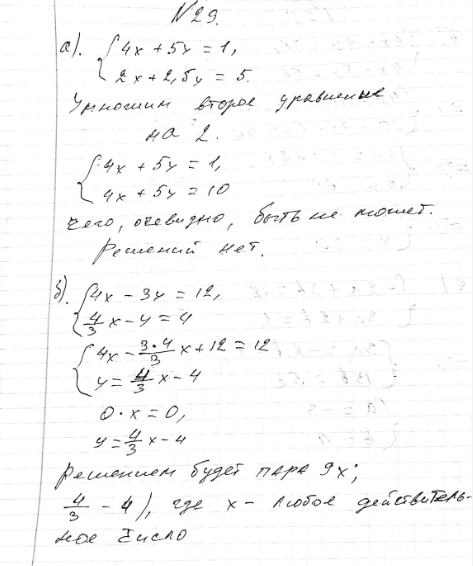 №29.
а). { 4x + 5y = 1,
2x + 2,5y = 5.
Умножим второе уравнение
на 2.
{ 4x + 5y = 1,
4x + 5y = 10
чего, очевидно, быть не может.
Решений нет.
б). { 4x - 3y = 12,
4/3 x - y = 4
{ 4x - 3·4/3 x + 12 = 12
y = 4/3 x - 4
0 · x = 0,
y = 4/3 x - 4
Решением будет пара 9x;
4/3 - 4), где x - любое действитель-
ное число